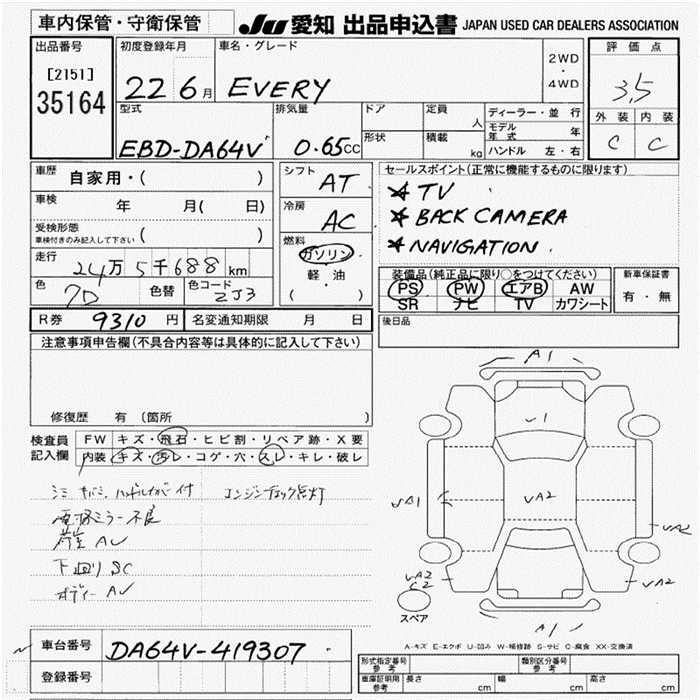 車内保管・守衛保管
JU 愛知 出品申込書 JAPAN USED CAR DEALERS ASSOCIATION
出品番号
[2151]
35164
初度登録年月
22 6月
車名・グレード
EVERY
2WD
・
4WD
評価点
3,5
外装 内装
C C
型式
EBD-DA64V
排気量
0.65CC
ドア
形状
定員
人
積載
kg
ディーラー・並行
モデル年式 年
ハンドル 左・右
車歴
自家用・( )
車検 年 月( 日)
受検形態
車検付きのみ記入して下さい ( )
走行
24万5千688km
色
7D
色替
色コード
ZJ3
シフト
AT
冷房
AC
燃料
ガソリン
・
軽・油
( )
セールスポイント(正常に機能するものに限ります)
★ TV
★ BACK CAMERA
★ NAVIGATION.
装備品(純正品に限り○をつけてください)
PS PW エアB AW
SR ナビ TV カワシート
新車保証書
有・無
後日品
R券 9310円
名変通知期限 月 日
注意事項申告欄(不具合内容等は具体的に記入して下さい)
修復歴 有(箇所 )
検査員記入欄
FW キズ・飛石・ヒビ割・リペア跡・X要
内装 キズ・汚レ・コゲ・穴・スレ・キレ・破レ
ハンドルカバー付
エンジンチェック点灯
ミラー不良
下回り SC
ボディー AU
A1
U1
UA1
UA2
UA2
UA2
C2
UA2
A1
スペア
A-キズ E-エクボ U-凹み W-補修跡 S-サビ C-腐食 XX-交換済
車台番号
DA64V-419307
登録番号
形式指定番号
参考
類別区分番号
参考
車庫証明用
参考
長さ cm 幅 cm 高さ cm